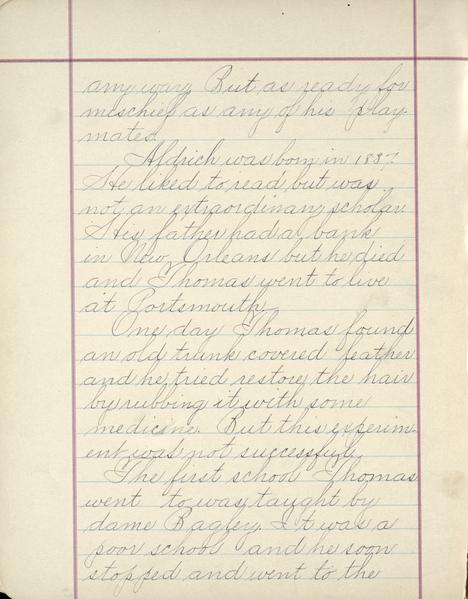 any way. But as ready for
mischief as any of his play-
mates.
Aldrich was born in 1837
He liked to read but was
not an extraordinary scholar.
His father had a bank
in New Orleans but he died
and Thomas went to live
at Portsmouth.
One day Thomas found
an old trunk covered leather
and he tried restore the hair
by rubbing it with some
medicine. But this experim-
ent was not successful.
The first school Thomas
went to was taught by
dame Bagley. It was a
poor school and he soon
stopped and went to the